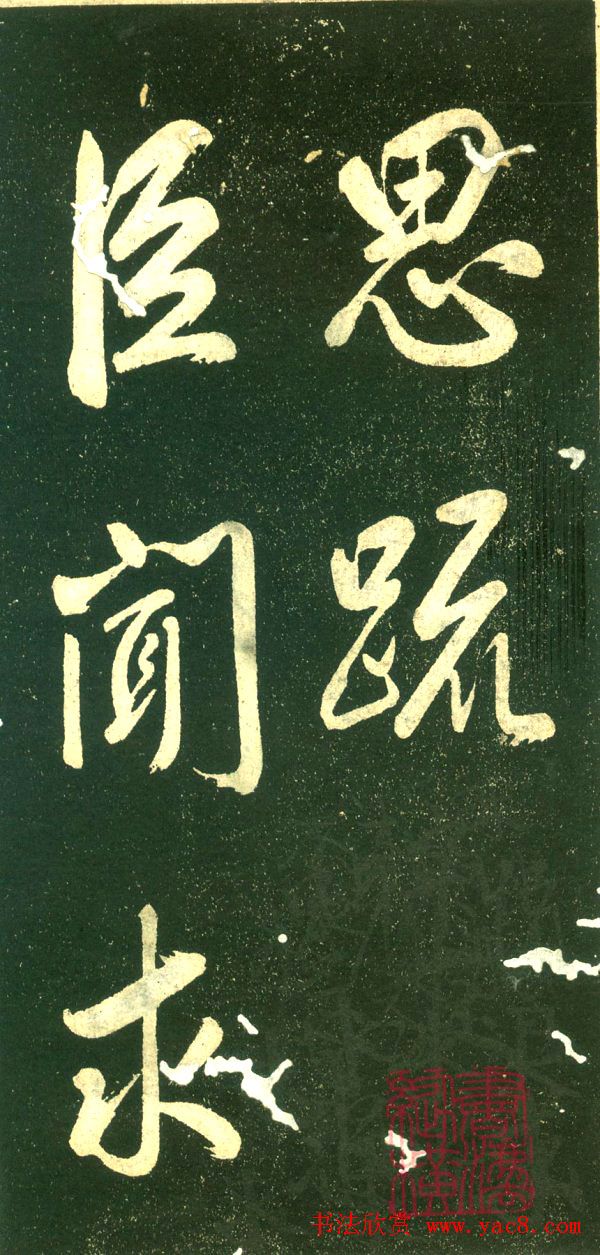 思疏
臣闻求
书法欣赏 www.yac8.com